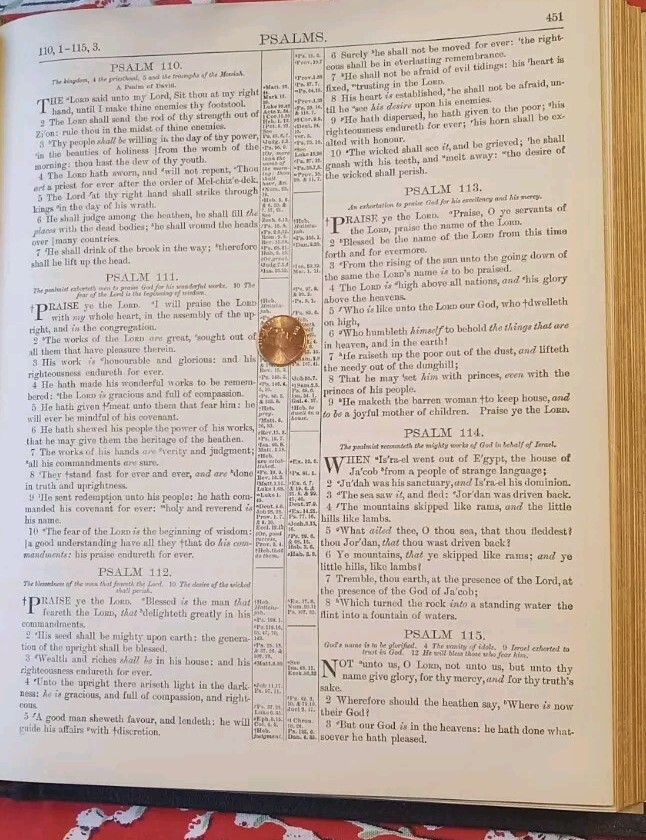 110, 1–115, 3.
PSALMS.
451
PSALM 110.
The kingdom, 4 the priesthood, 5 and the triumphs of the Messiah.
A Psalm of David.
THE LORD said unto my Lord, Sit thou at my right
hand, until I make thine enemies thy footstool.
2 The LORD shall send the rod of thy strength out of
Zi'on: rule thou in the midst of thine enemies.
3 Thy people shall be willing in the day of thy power,
in the beauties of holiness from the womb of the
morning: thou hast the dew of thy youth.
4 The LORD hath sworn, and will not repent, Thou
art a priest for ever after the order of Mel-chiz'e-dek.
5 The Lord at thy right hand shall strike through
kings in the day of his wrath.
6 He shall judge among the heathen, he shall fill the
places with the dead bodies; he shall wound the heads
over many countries.
7 He shall drink of the brook in the way; therefore
shall he lift up the head.
PSALM 111.
The psalmist exhorteth men to praise God for his wonderful works. 10 The
fear of the Lord is the beginning of wisdom.
†PRAISE ye the LORD. I will praise the LORD
with my whole heart, in the assembly of the up-
right, and in the congregation.
2 The works of the LORD are great, sought out of
all them that have pleasure therein.
3 His work is honourable and glorious: and his
righteousness endureth for ever.
4 He hath made his wonderful works to be remem-
bered: the LORD is gracious and full of compassion.
5 He hath given †meat unto them that fear him: he
will ever be mindful of his covenant.
6 He hath shewed his people the power of his works,
that he may give them the heritage of the heathen.
7 The works of his hands are verity and judgment;
all his commandments are sure.
8 They †stand fast for ever and ever, and are done
in truth and uprightness.
9 He sent redemption unto his people: he hath com-
manded his covenant for ever: holy and reverend is
his name.
10 The fear of the LORD is the beginning of wisdom:
a good understanding have all they †that do his com-
mandments: his praise endureth for ever.
PSALM 112.
The blessedness of the man that feareth the Lord. 10 The desire of the wicked
shall perish.
†PRAISE ye the LORD. Blessed is the man that
feareth the LORD, that delighteth greatly in his
commandments.
2 His seed shall be mighty upon earth: the genera-
tion of the upright shall be blessed.
3 Wealth and riches shall be in his house; and his
righteousness endureth for ever.
4 Unto the upright there ariseth light in the dark-
ness: he is gracious, and full of compassion, and right-
eous.
5 A good man sheweth favour, and lendeth: he will
guide his affairs with †discretion.
6 Surely he shall not be moved for ever: the right-
eous shall be in everlasting remembrance.
7 He shall not be afraid of evil tidings: his heart is
fixed, trusting in the LORD.
8 His heart is established, he shall not be afraid, un-
til he see his desire upon his enemies.
9 He hath dispersed, he hath given to the poor; his
righteousness endureth for ever; his horn shall be ex-
alted with honour.
10 The wicked shall see it, and be grieved; he shall
gnash with his teeth, and melt away: the desire of
the wicked shall perish.
PSALM 113.
An exhortation to praise God for his excellency and his mercy.
†PRAISE ye the LORD. Praise, O ye servants of
the LORD, praise the name of the LORD.
2 Blessed be the name of the LORD from this time
forth and for evermore.
3 From the rising of the sun unto the going down of
the same the LORD's name is to be praised.
4 The LORD is high above all nations, and his glory
above the heavens.
5 Who is like unto the LORD our God, who †dwelleth
on high,
6 Who humbleth himself to behold the things that are
in heaven, and in the earth!
7 He raiseth up the poor out of the dust, and lifteth
the needy out of the dunghill;
8 That he may set him with princes, even with the
princes of his people.
9 He maketh the barren woman †to keep house, and
to be a joyful mother of children. Praise ye the LORD.
PSALM 114.
The psalmist recounteth the mighty works of God in behalf of Israel.
WHEN Is'ra-el went out of E'gypt, the house of
Ja'cob from a people of strange language;
2 Ju'dah was his sanctuary, and Is'ra-el his dominion.
3 The sea saw it, and fled: Jor'dan was driven back.
4 The mountains skipped like rams, and the little
hills like lambs.
5 What ailed thee, O thou sea, that thou fleddest?
thou Jor'dan, that thou wast driven back?
6 Ye mountains, that ye skipped like rams; and ye
little hills, like lambs?
7 Tremble, thou earth, at the presence of the Lord, at
the presence of the God of Ja'cob;
8 Which turned the rock into a standing water the
flint into a fountain of waters.
PSALM 115.
God's name is to be glorified. 4 The vanity of idols. 9 Israel exhorted to
trust in God. 12 He will bless those who fear him.
NOT unto us, O LORD, not unto us, but unto thy
name give glory, for thy mercy, and for thy truth's
sake.
2 Wherefore should the heathen say, Where is now
their God?
3 But our God is in the heavens: he hath done what-
soever he hath pleased.